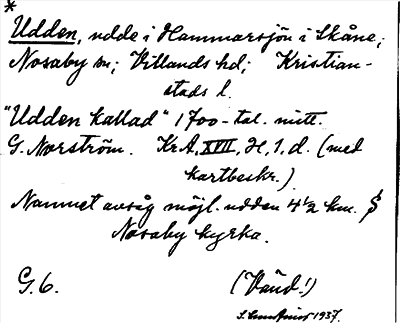 *
Udden, udde i Hammarsjön i Skåne;
Nosaby sn; Villands hd; Kristian-
stads l.
"Udden kallad" 1700-tal. mitt.
G. Norström. KrA, XVII, H, 1, d. (med
kartbeskr.)
Namnet avsåg möjl. udden 4½ km. S
Nosaby kyrka.
G. 6. (Vaud!)
1937.